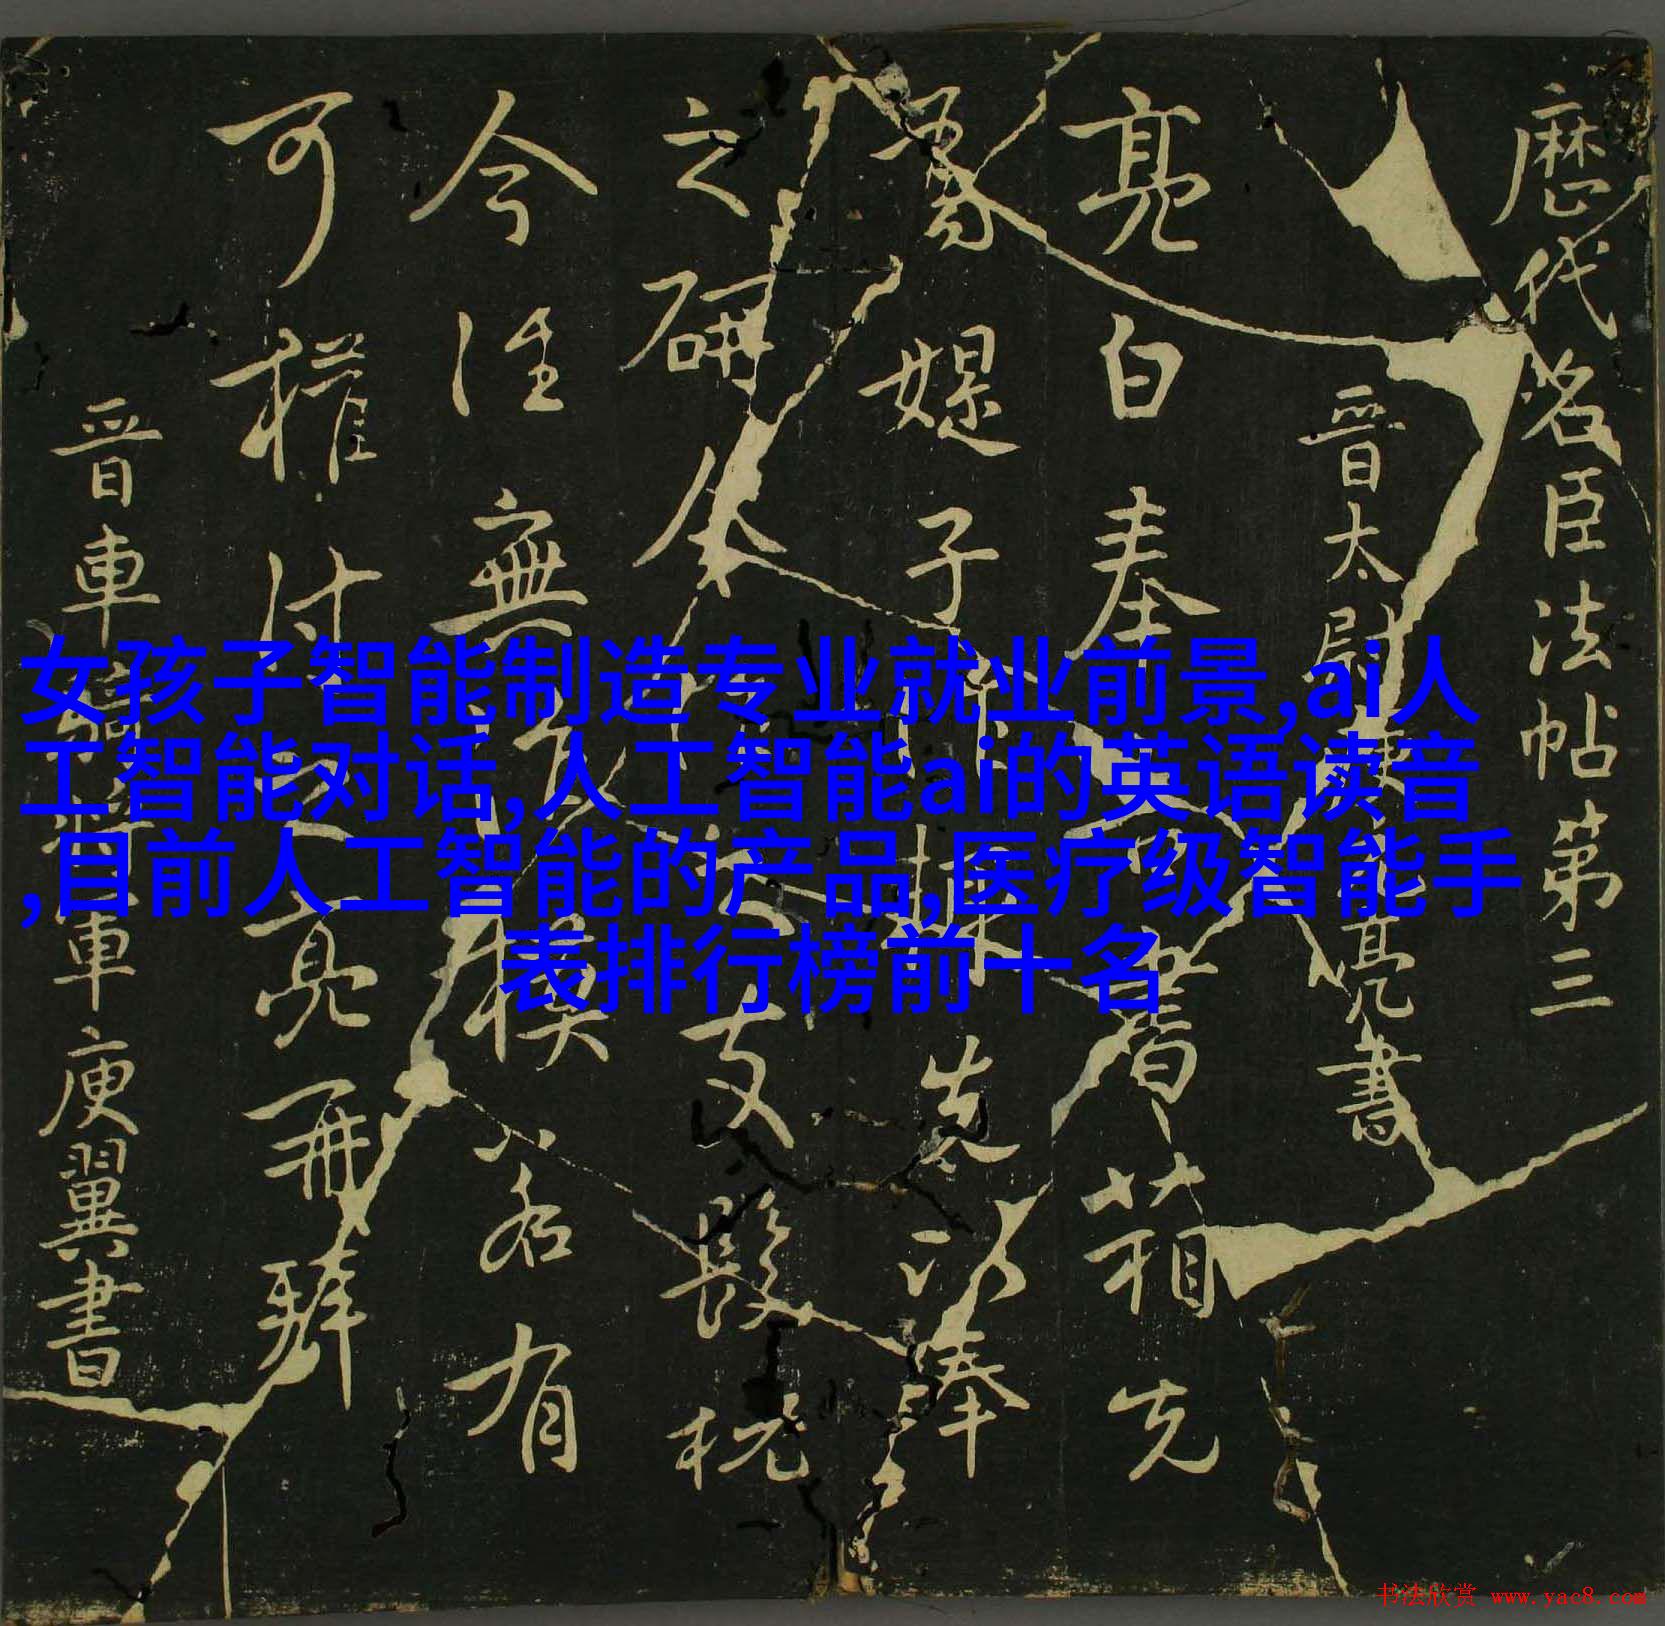 厯代名臣法帖第三
晉太尉庾亮書
亮白奉書箱先
子先以奉
之研
今往無模若有
可權付亮再拜
晉車騎將軍庾翼書
女孩子智能制造专业就业前景,ai人
工智能对话,人工智能ai的英语读音
,目前人工智能的产品,医疗级智能手
表排行榜前十名
书法欣赏 www.yac8.com